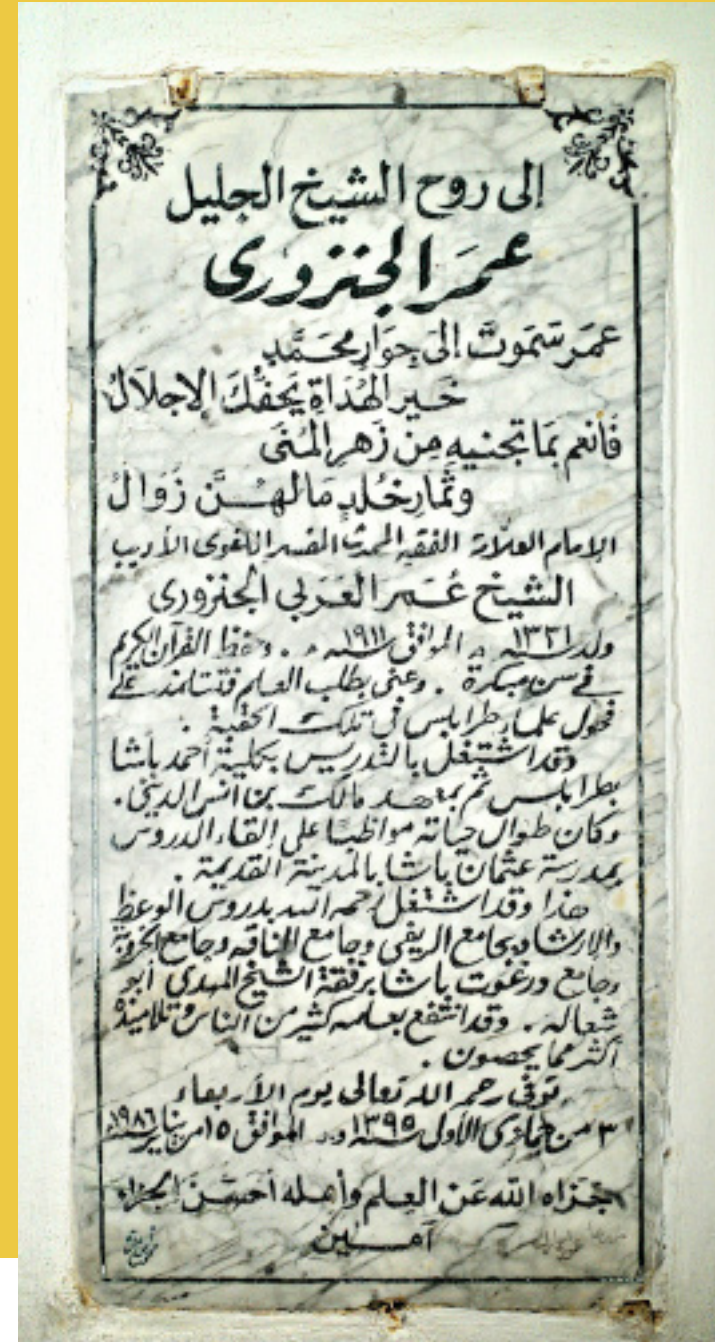 إلى روح الشيخ الجليل
عمر الجنزوري
عمَر سَمَوتَ إلى جِوَارِ محَمَّدٍ
خَير الهُدَاةِ يَحفُّكَ الإجلالُ
فَانعم بمَا تجنيهِ مِن زَهرِ المُنَى
وثمَارِ خُلدٍ مَا لهُنَّ زَوَالُ
الإمام العلامة الفقيه المحدث المفسر اللغوي الأديب
الشيخ عُمَر العَربي الجنزوري
ولد سنة ١٣٢١ هـ الموافق سنة ١٩١١ م . وحفظ القرآن الكريم
في سن مبكرة . وعنى بطلب العلم فتتلمذ على
فحول علماء طرابلس في تلك الحقبة .
وقد اشتغل بالتدريس بكلية أحمد باشا
بطرابلس ثم بمعهد مالك بن انس الديني .
وكان طوال حياته مواظبا على إلقاء الدروس
بمدرسة عثمان باشا بالمدينة القديمة .
هذا وقد اشتغل رحمه الله بدروس الوعظ
والإرشاد بجامع الريفي وجامع الناقه وجامع الخروبة
وجامع درغوت باشا برفقة الشيخ المهدي أبو
شعاله . وقد انتفع بعلمه كثير من الناس وتلاميذه
أكثر مما يحصون .
توفي رحمه الله تعالى يوم الأربعاء
٣ من جمادى الأول سنة ١٣٩٥ و.ر الموافق ١٥ من يناير سنة ١٩٨٦
جَزاه الله عَن العِلم وأهله أحسَنَ الجزاء
آمـــين